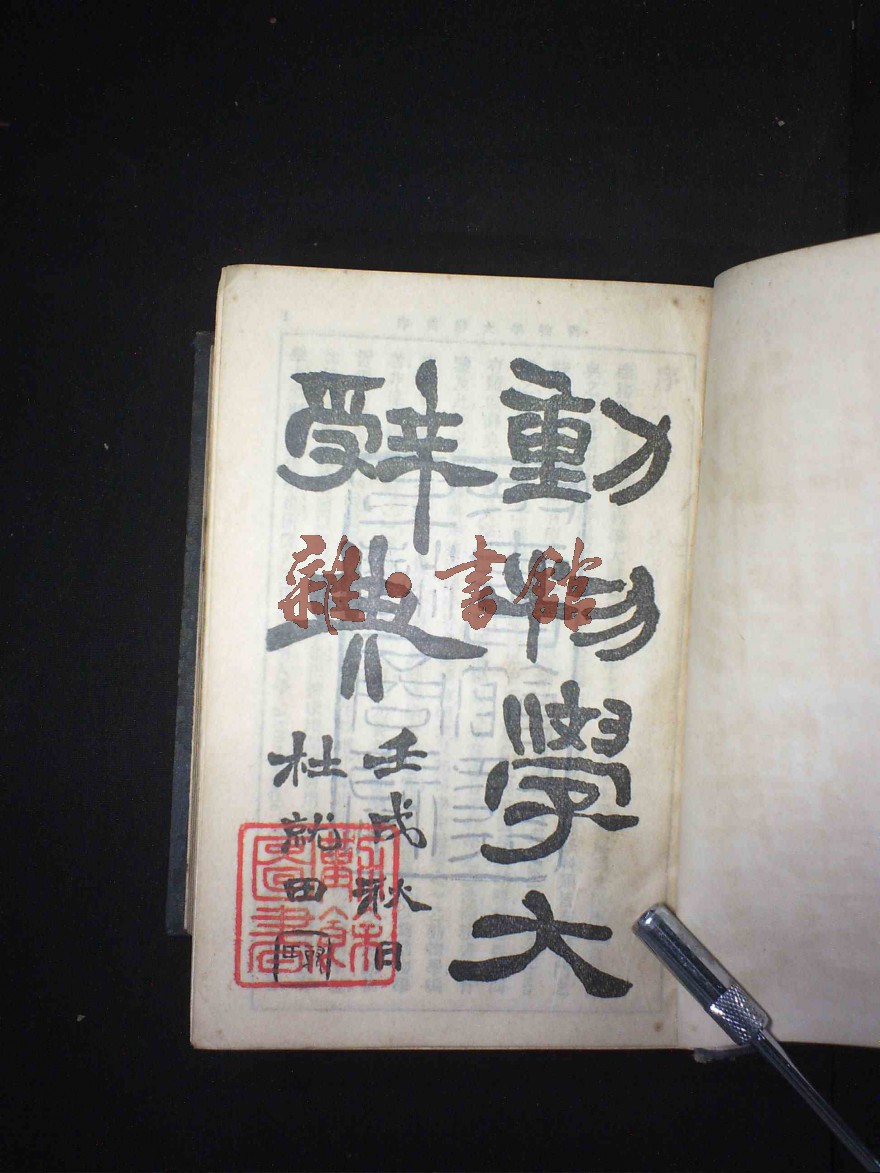 動物學大
辤典
壬戌秋日
杜就田
雜·書館
圖書